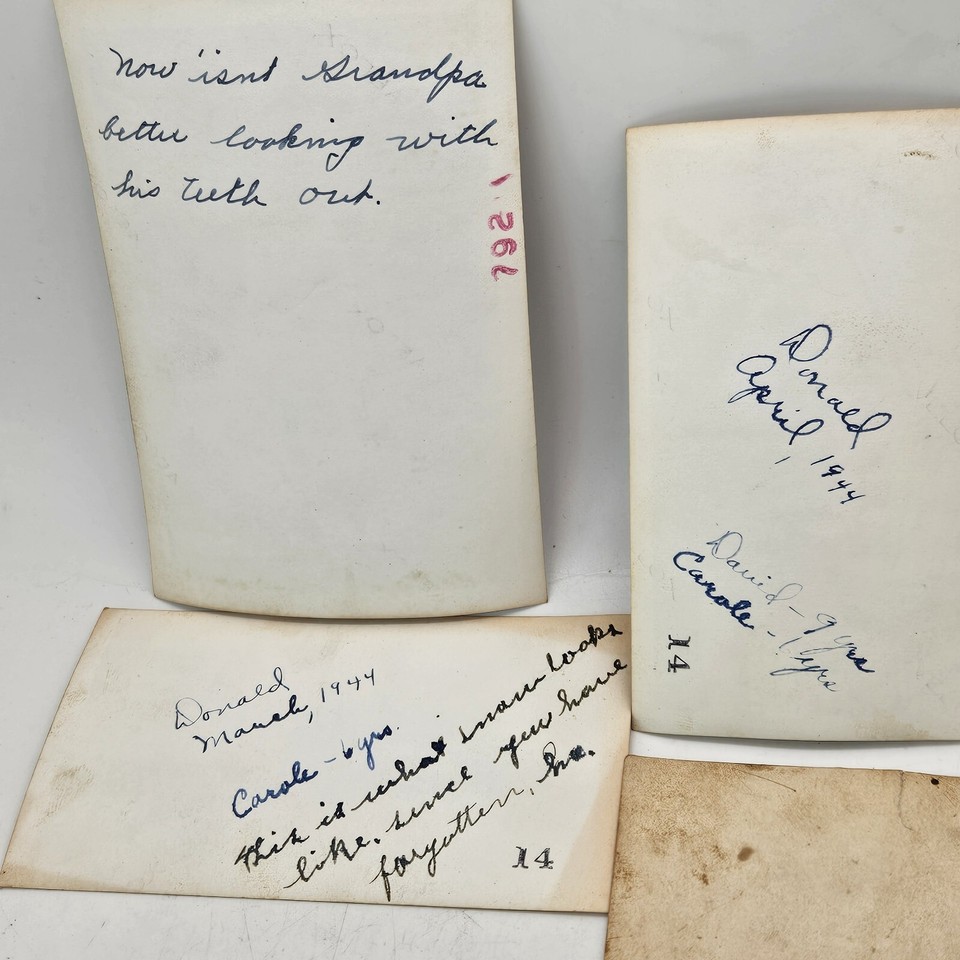 Now isnt Grandpa
better looking with
his teeth out.
Donald
April, 1944
David - 9 yrs
Carole -
14
Donald
March, 1944
Carole - 6 yrs.
this is what snow looks
like, since you have
forgotten, ha.
14